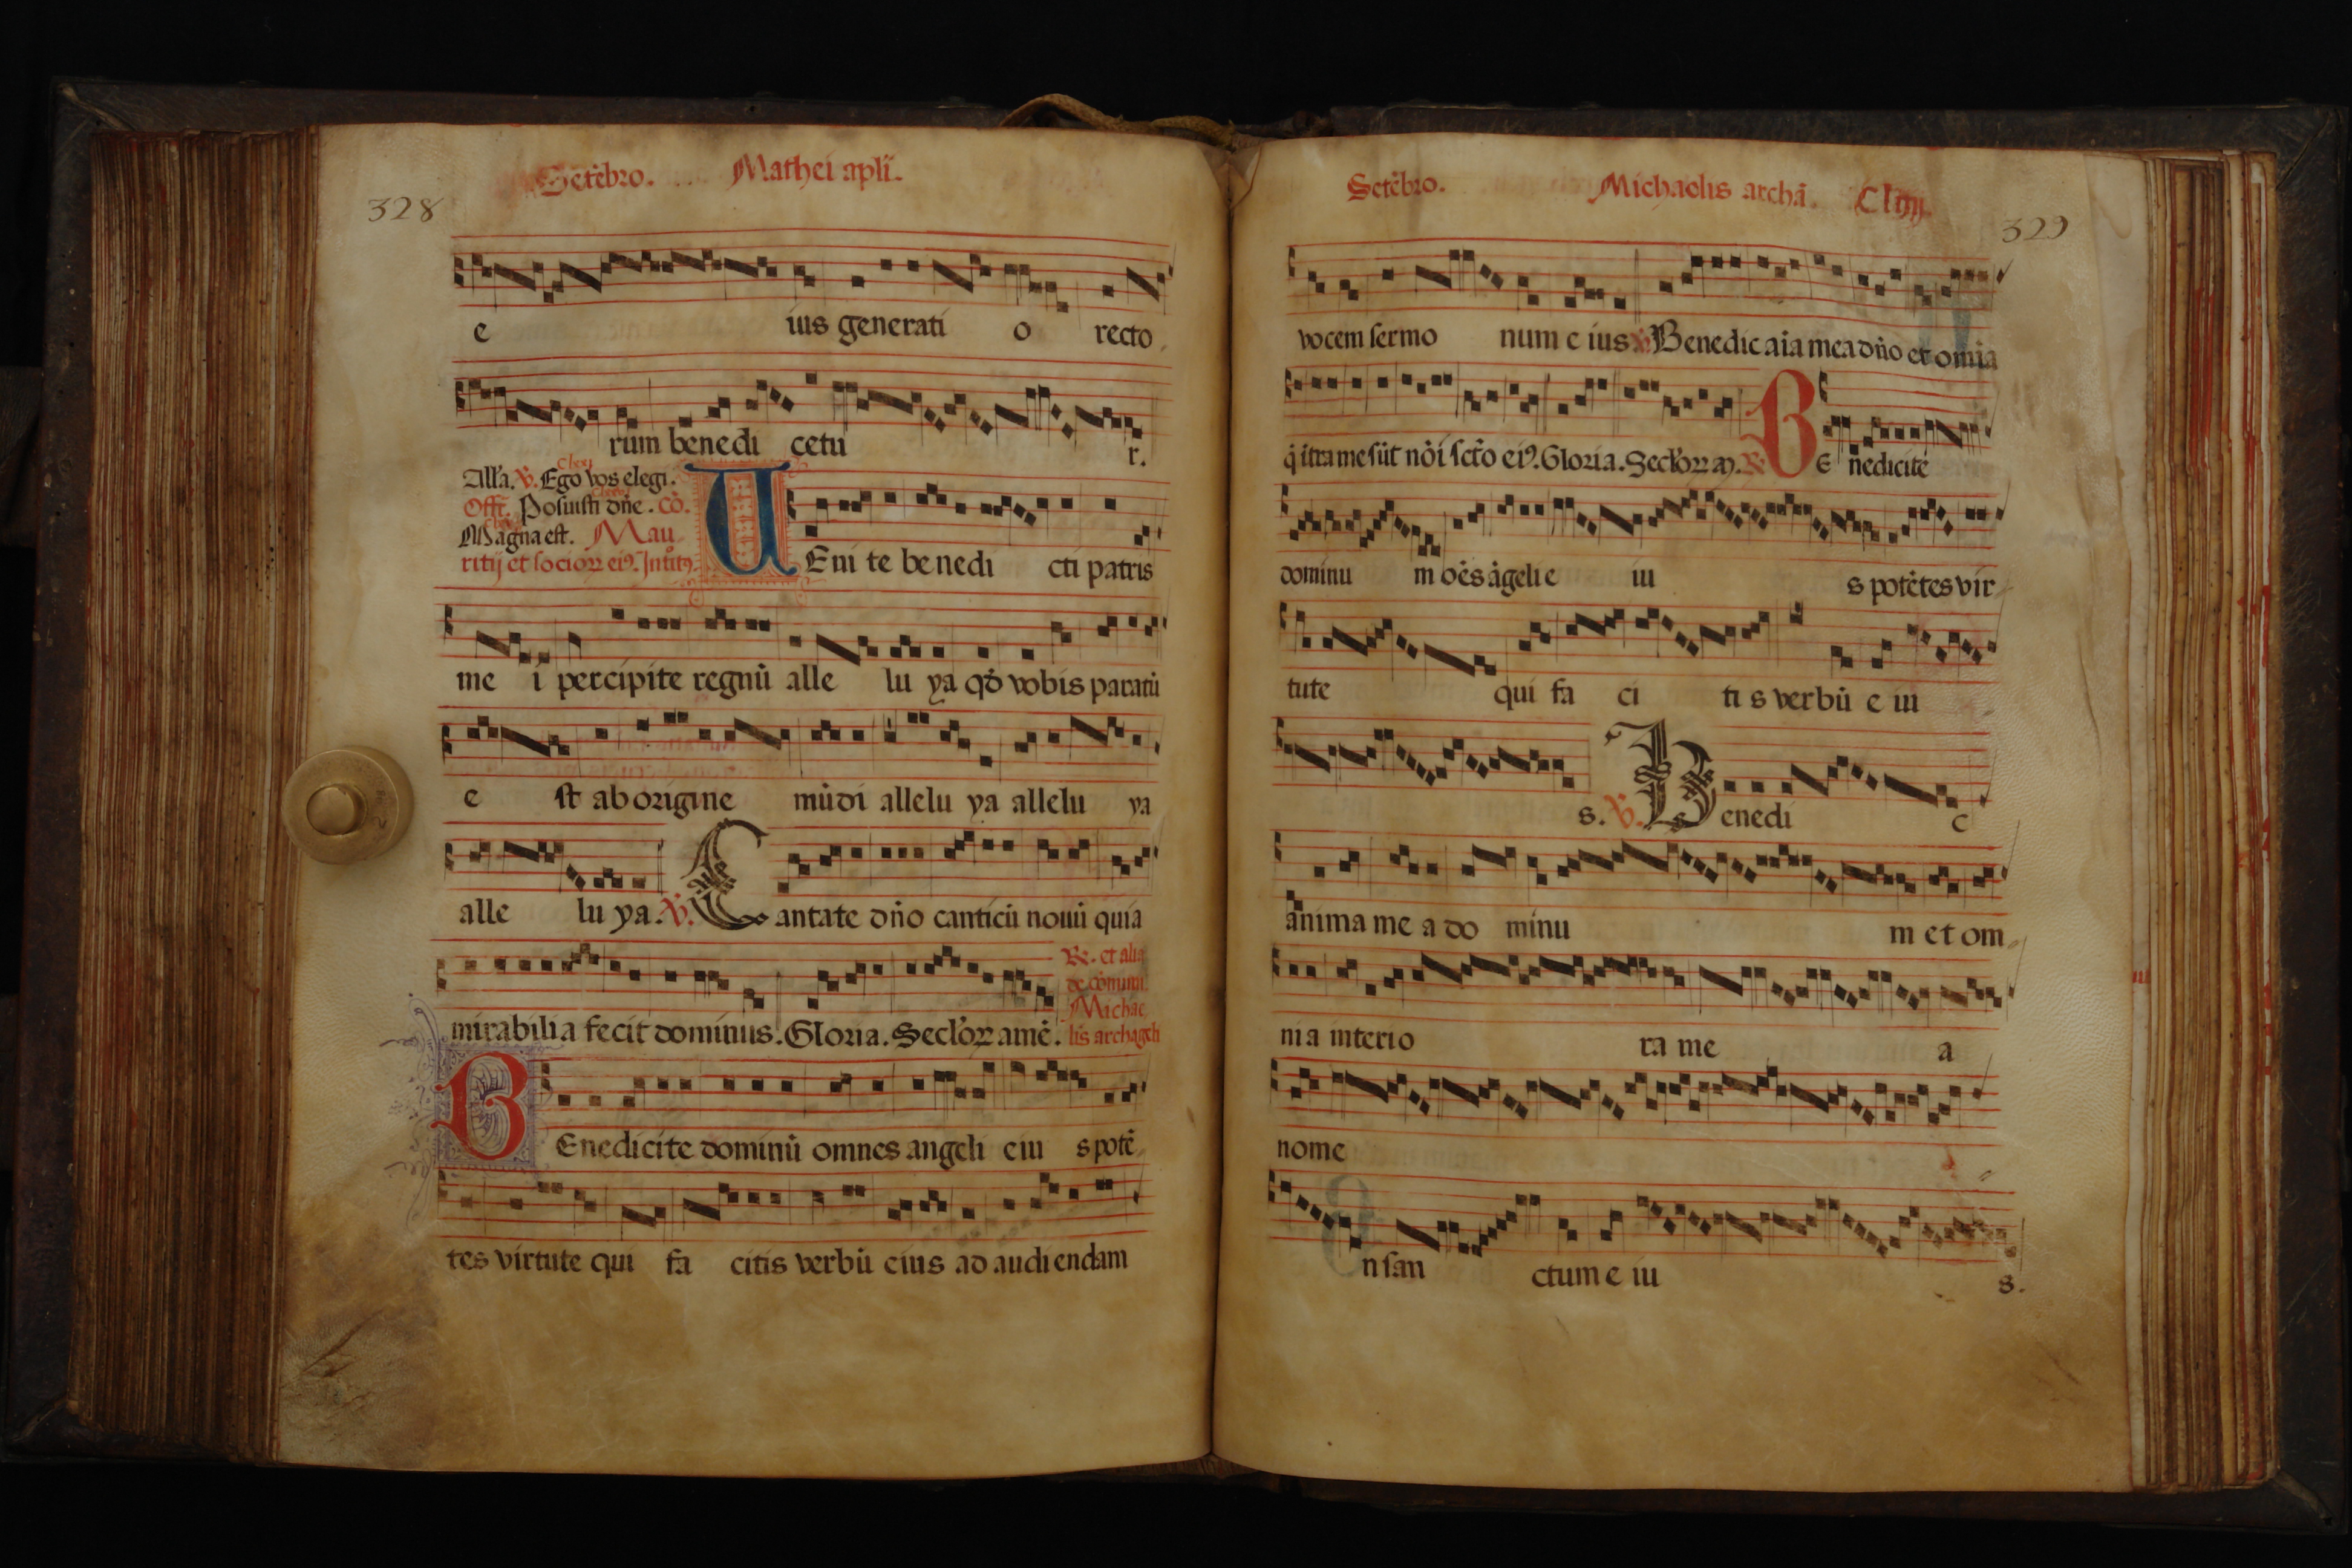 Setẽbro. Mathei apli.
328
e ius generati o recto
rum benedi cetu r.
Alla. ℣. Ego vos elegi.
Offr̃. Posuisti dñe. Cõ.
Magna est. Mau
ritij et socioꝝ eiꝰ. Introitꝰ
UEni te be nedi cti patris
me i percipite regnũ alle lu ya qḋ vobis paratũ
e st ab origine mũdi allelu ya allelu ya
alle lu ya. ℣. Cantate dño canticũ nouũ quia
mirabilia fecit dominus. Gloria. Secloꝝ amẽ.
℞. et alia
de cõmuni.
Michae
lis archageli
BEnedicite dominũ omnes angeli eiu s potẽ
tes virtute qui fa citis verbũ eius ad audiendam
Setẽbro. Michaelis archã.
329
vocem sermo num e ius ℣ Benedic aĩa mea dño et omĩa
q̃ ĩtra me sũt nõĩ scto eiꝰ. Gloria. Secloꝝ a. ℞ BE nedicite
dominu m oẽs ãgeli e iu s potẽtes vir
tute qui fa ci ti s verbũ e iu
s. ℣. Benedi c
anima me a do minu m et om
nia interio ra me a
nome
n san ctum e iu s.